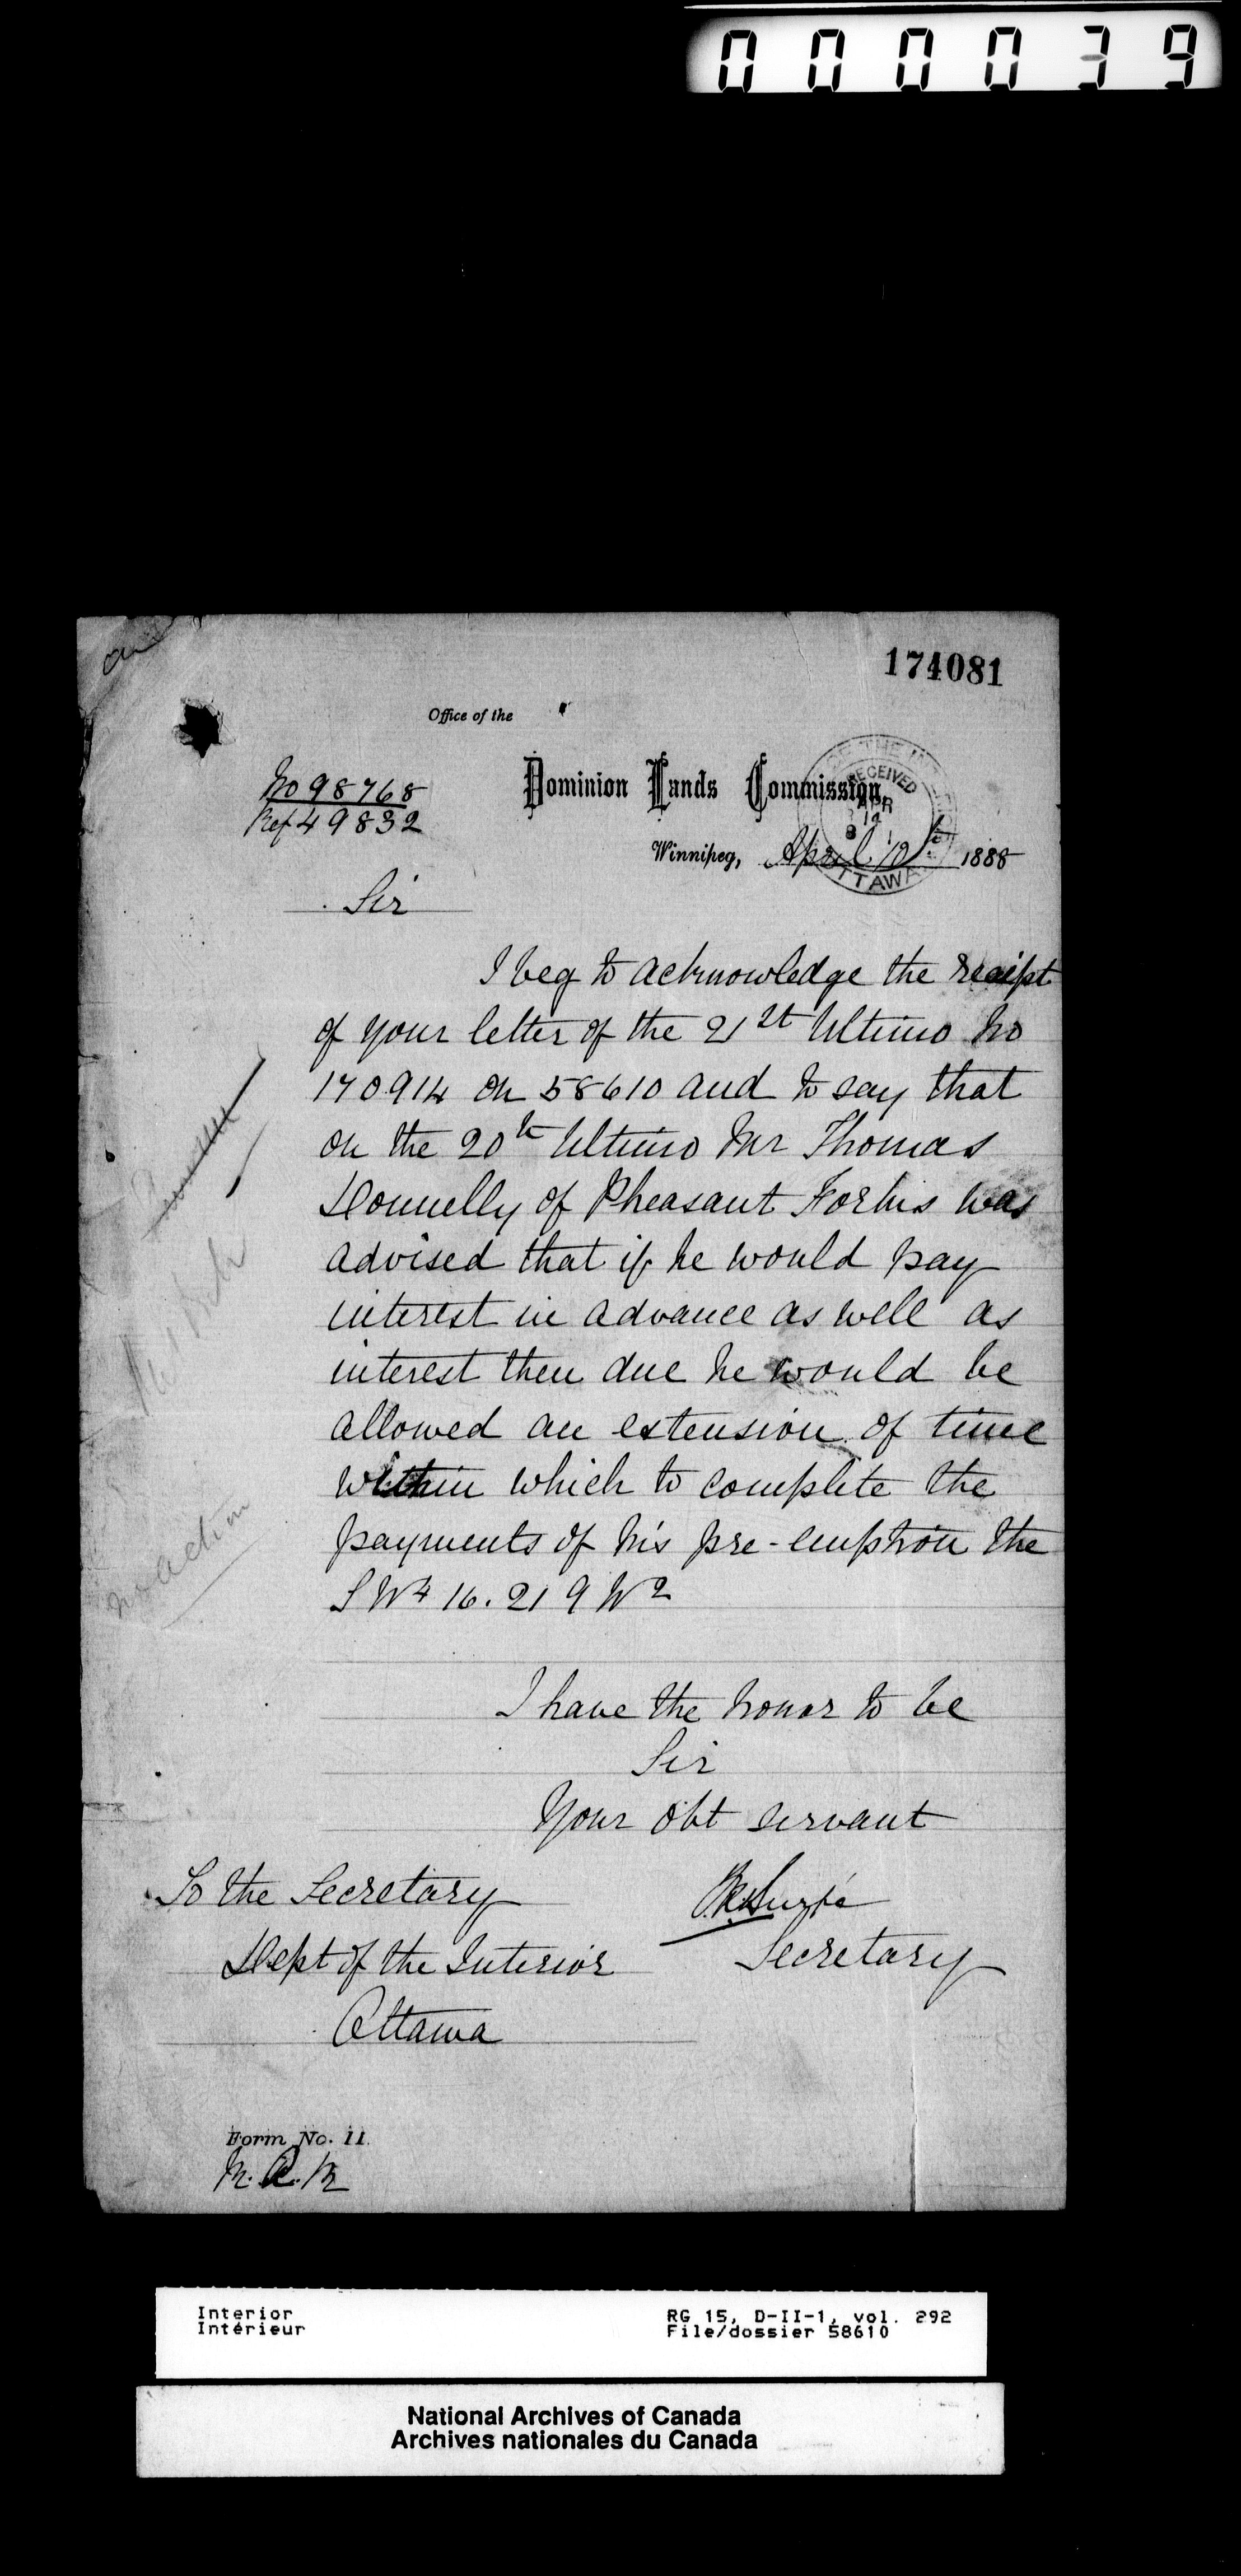 000039
174081
Office of the
No 98768
Ref 49832
Dominion Lands Commission,
RECEIVED
APR
OTTAWA
Winnipeg, April 12th 1888
Sir
I beg to acknowledge the receipt
of your letter of the 21st Ultimo No
170914 on 58610 and to say that
on the 20th Ultimo Mr Thomas
Donnelly of Pheasant Forks was
advised that if he would pay
interest in advance as well as
interest then due he would be
allowed an extension of time
within which to complete the
payments of his pre-emption the
SW4 16. 21 9 W2
no action
I have the honor to be
Sir
Your obt servant
To the Secretary
Secretary
Dept of the Interior
Ottawa
Form No. 11.
Interior
Intérieur
RG 15, D-II-1, vol. 292
File/dossier 58610
National Archives of Canada
Archives nationales du Canada